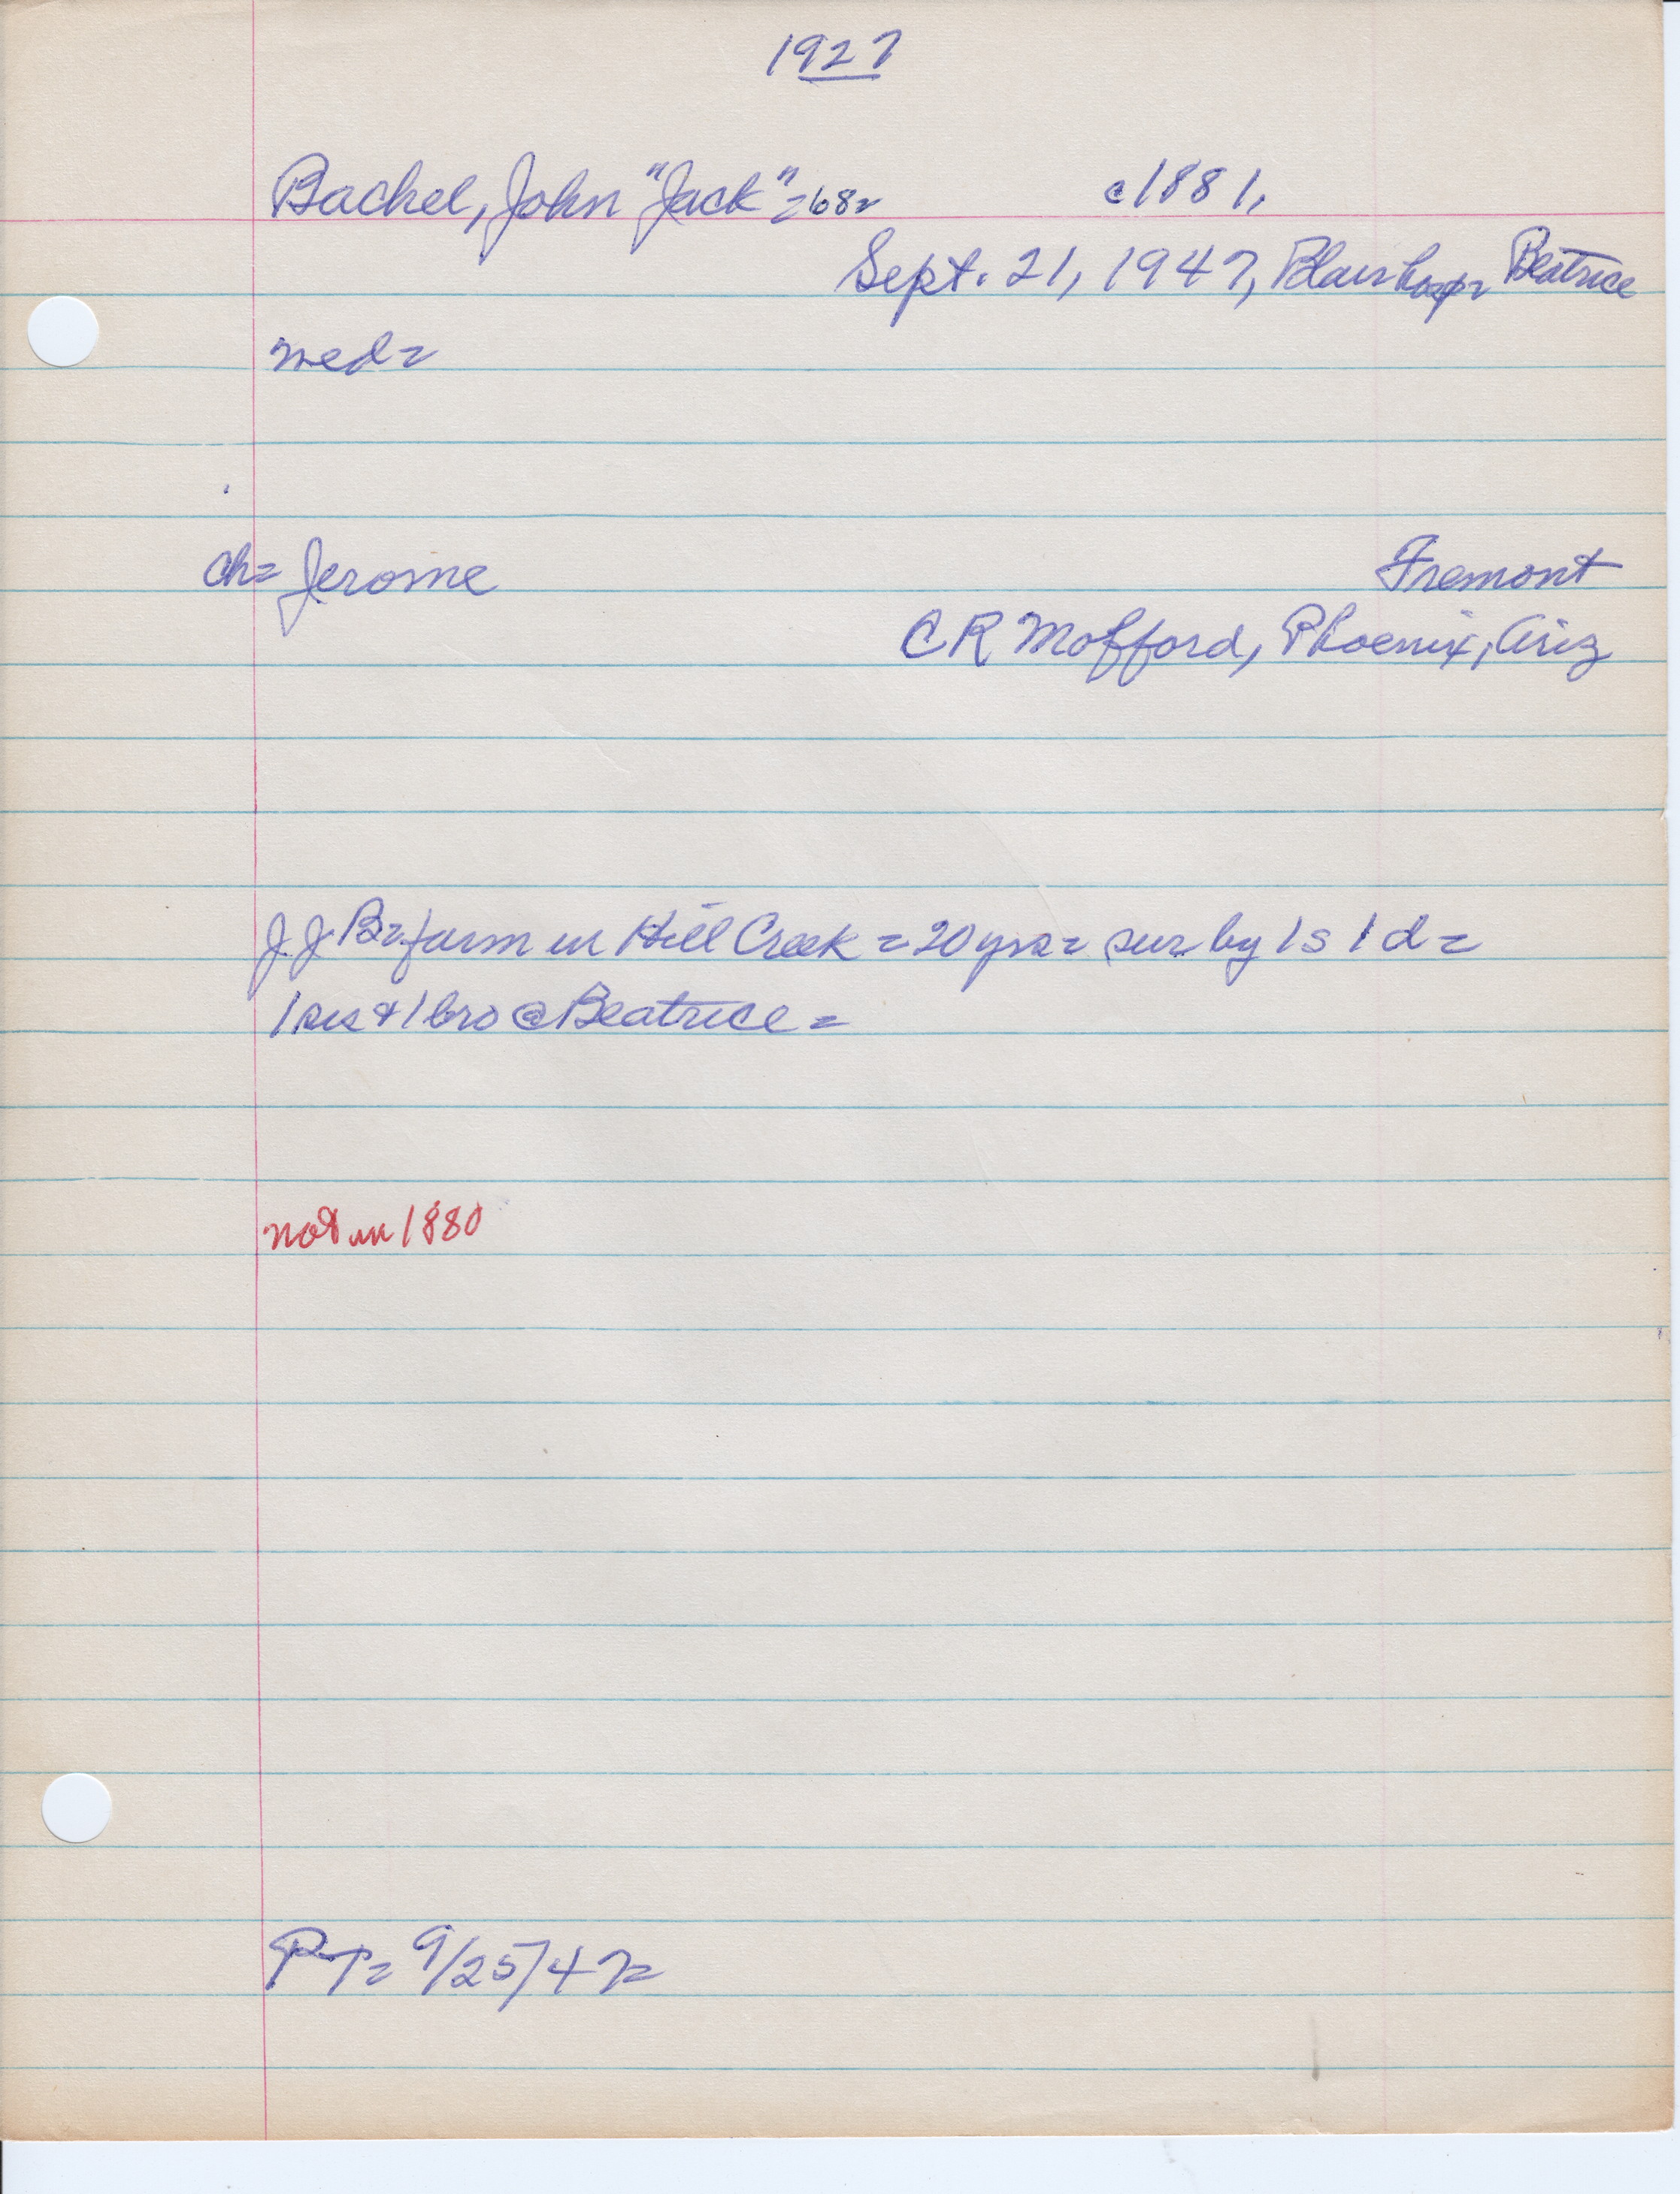 1927
Bachel, John "Jack" = 68 = c1881,
Sept. 21, 1947, Blair hosp = Beatrice
wed =
ch = Jerome Fremont
C R Mofford, Phoenix, Ariz
J.J. B = farm in Hill Creek = 20 yrs = sur by 1 s 1 d =
1 sis & 1 bro @ Beatrice =
not in 1880
PT = 9/25/47 =